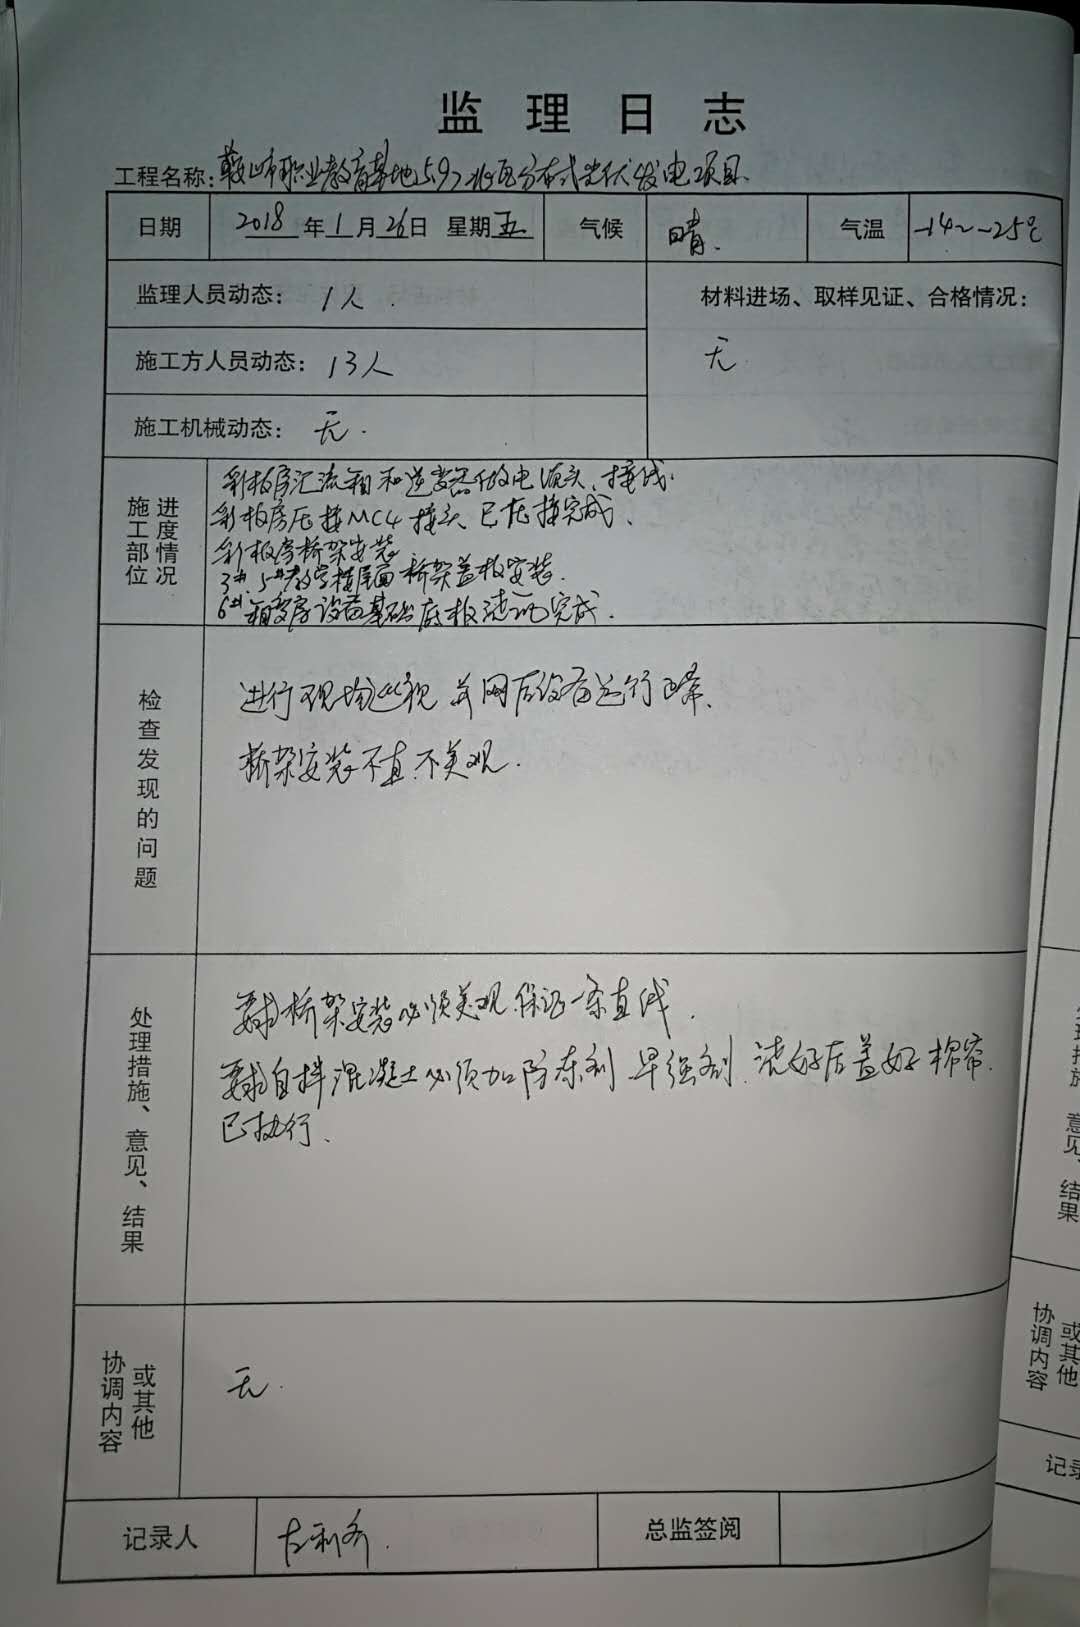 监理日志
工程名称:鞍山市职业教育基地5.97兆瓦分布式光伏发电项目
日期 2018年1月26日 星期五 气候 晴. 气温 -14~-25℃
监理人员动态: 1人.
材料进场、取样见证、合格情况:
无.
施工方人员动态: 13人
施工机械动态: 无.
施工部位进度情况
彩板房汇流箱和逆变器做电源头、接线.
彩板房压接MC4接头已压接完成、
彩板房桥架安装
3#、5#教学楼屋面桥架盖板安装.
6#箱变房设备基础底板浇砼完成.
检查发现的问题
进行现场巡视 并网后设备运行正常.
桥架安装不直.不美观.
处理措施、意见、结果
要求桥架安装必须美观.保证一条直线.
要求自拌混凝土必须加防冻剂 早强剂.浇好后盖好棉帘.
已执行.
协调内容或其他
无.
记录人 左利
总监签阅
处理措施、意见、结果
协调内容或其他
记录